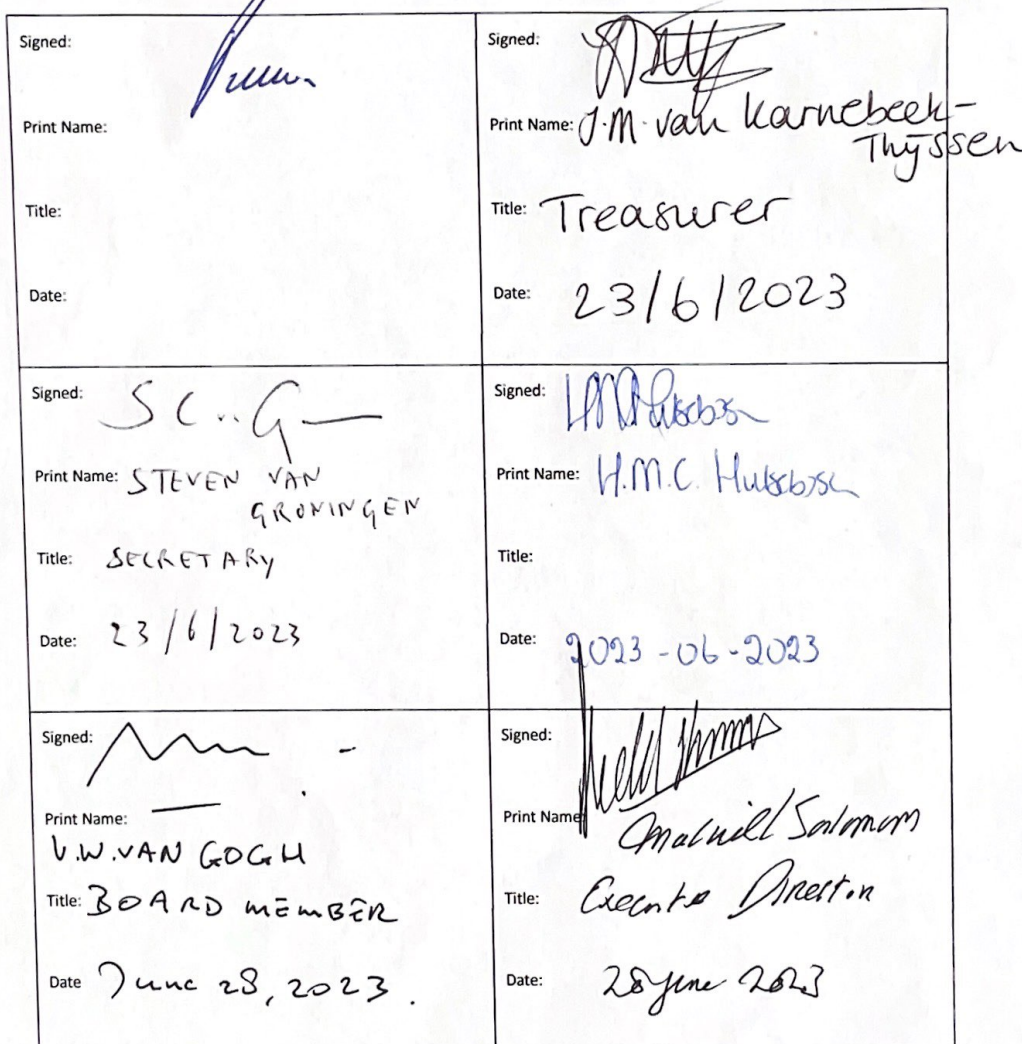 Signed:
Print Name:
Title:
Date:
Signed:
Print Name: J.M. van Karnebeek-
Thijssen
Title: Treasurer
Date: 23/6/2023
Signed:
Print Name: STEVEN VAN
GRONINGEN
Title: SECRETARY
Date: 23/6/2023
Signed:
Print Name: H.M.C. Hulsbosch
Title:
Date: 2023-06-2023
Signed:
Print Name:
V.W. VAN GOGH
Title: BOARD MEMBER
Date June 28, 2023.
Signed:
Print Name
Salomon
Title: Executive Director
Date: 28 June 2023